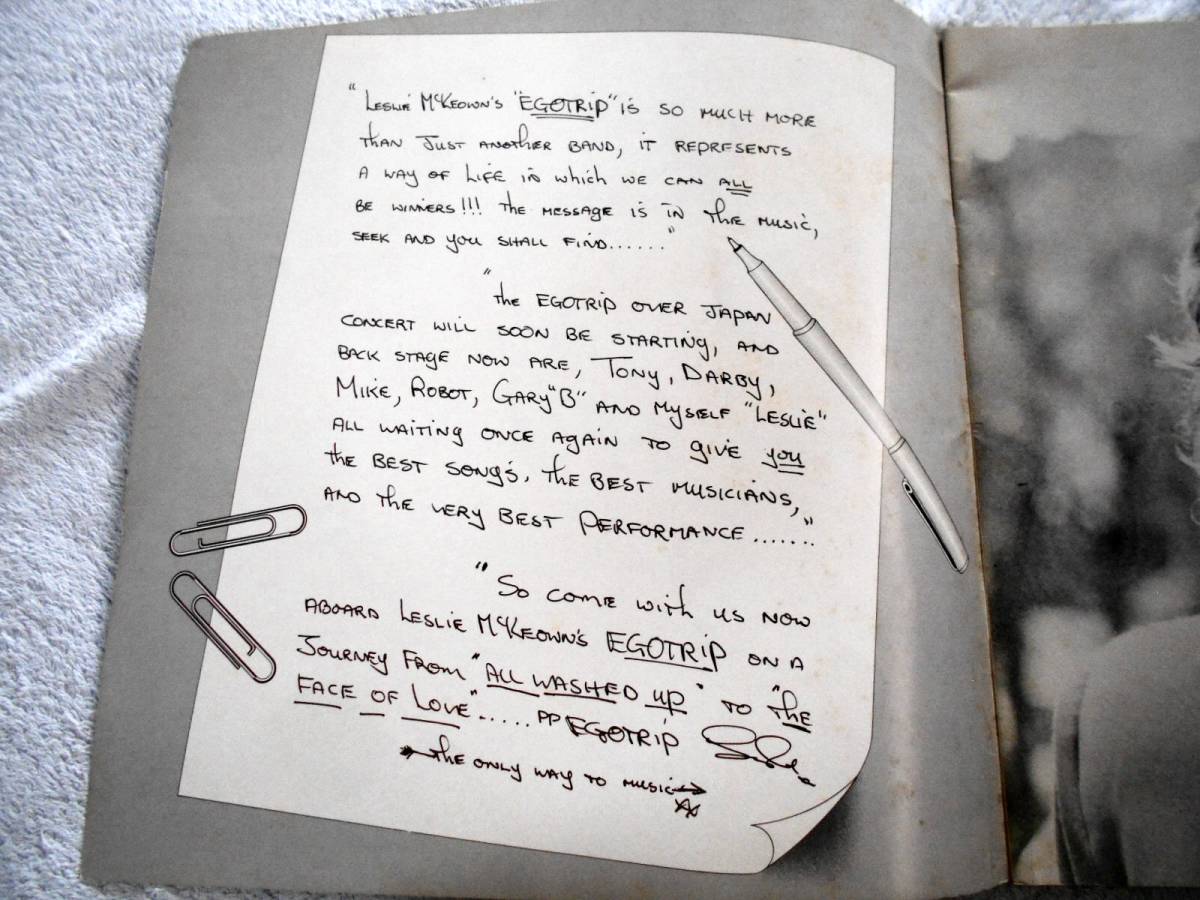 "Leslie McKeown's "EGOTRIP" is so much more
than just another band, it represents
a way of life in which we can all
be winners!!! The message is in the music,
seek and you shall find......"
"the EGOTRIP over Japan
concert will soon be starting, and
back stage now are, Tony, Darby,
Mike, Robot, Gary "B" and myself "Leslie"
all waiting once again to give you
the best song's, the best musicians,
and the very best performance......."
"So come with us now
aboard Leslie McKeown's EGOTRIP on a
journey from "ALL WASHED UP" to "the
FACE OF LOVE"..... PP EGOTRIP
the only way to music